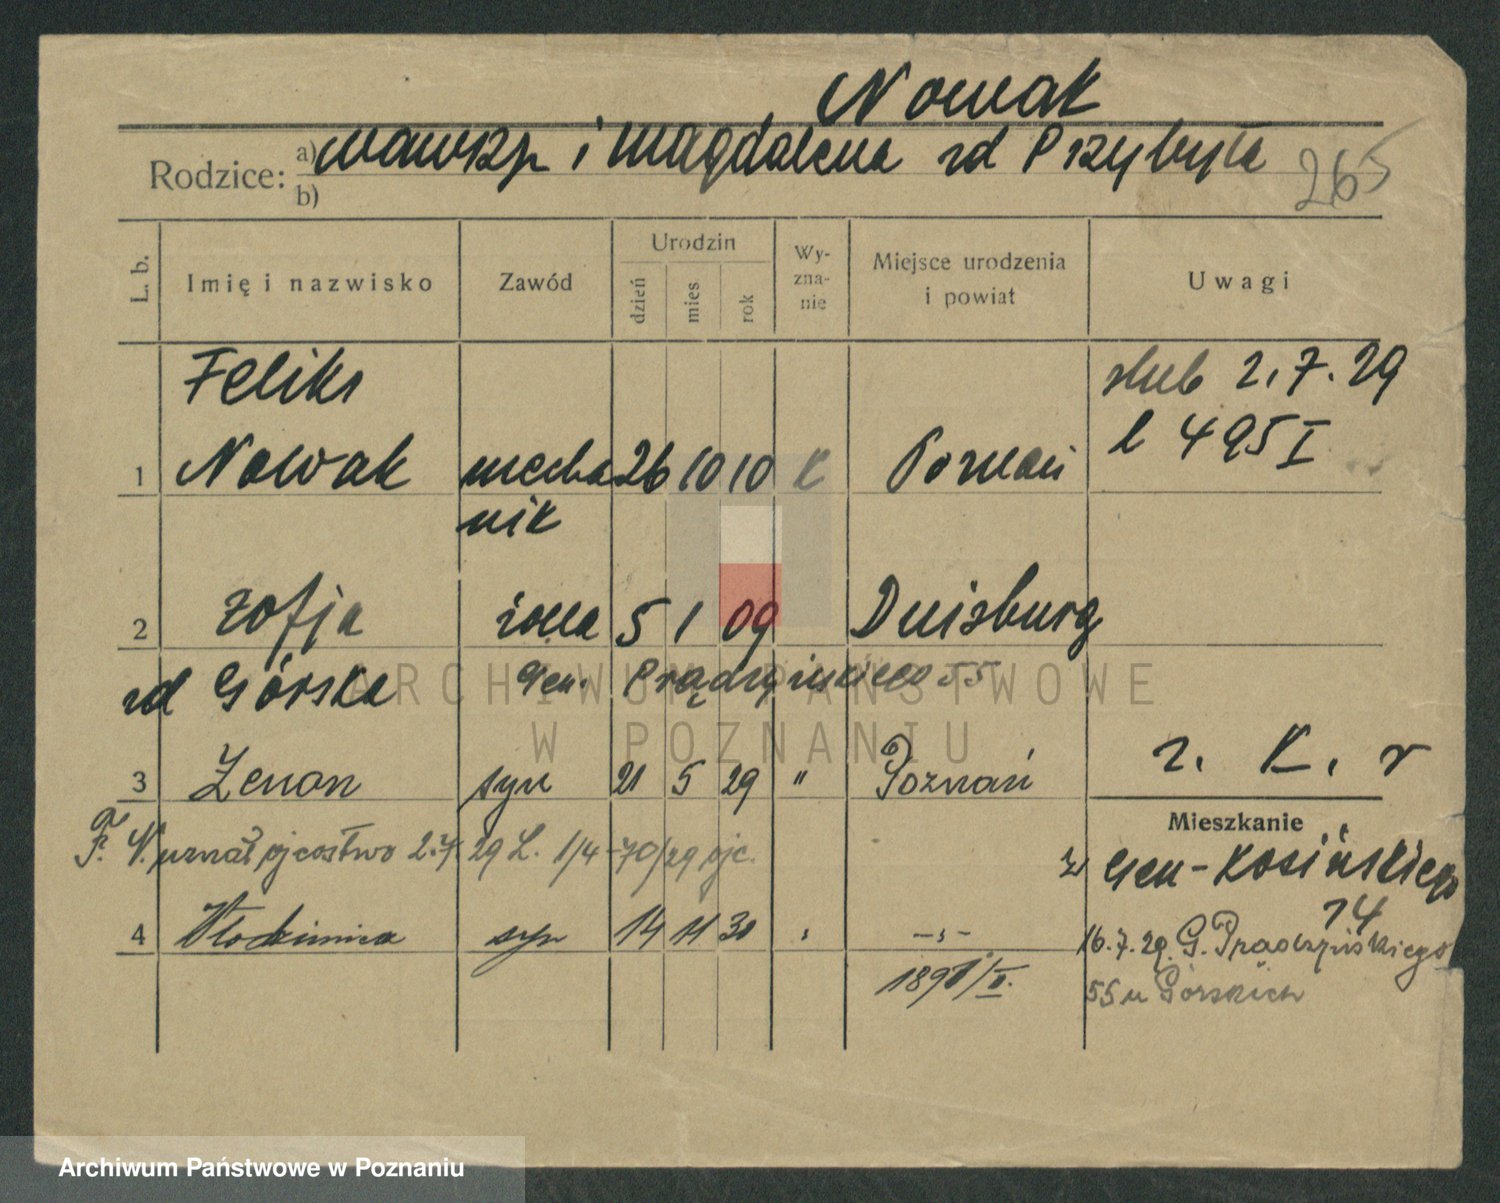 Nowak
Rodzice: a) Wawrzyn i Magdalena zd Przybyła
b)
265
L. b.
Imię i nazwisko
Zawód
Urodzin
dzień
mies
rok
Wy-
zna-
nie
Miejsce urodzenia
i powiat
Uwagi
Feliks
ślub 2.7.29
l 495 I
1 Nowak mecha 26 10 10 K Poznań
nik
2 Zofja żona 5 1 09 Duisburg
zd Górska Gen. Prądzyńskiego 55
ARCHIWUM PAŃSTWOWE
W POZNANIU
z. K. r
3 Zenon syn 21 5 29 " Poznań
Mieszkanie
F. N. uznał ojcostwo 2.7.29 L. 1/4-70/29 ojc.
Gen-Kosińskiego
14
4 Włodzimierz syn 14 11 30 , -,-
16.7.29. G. Prądzyńskiego
55 u Górskich